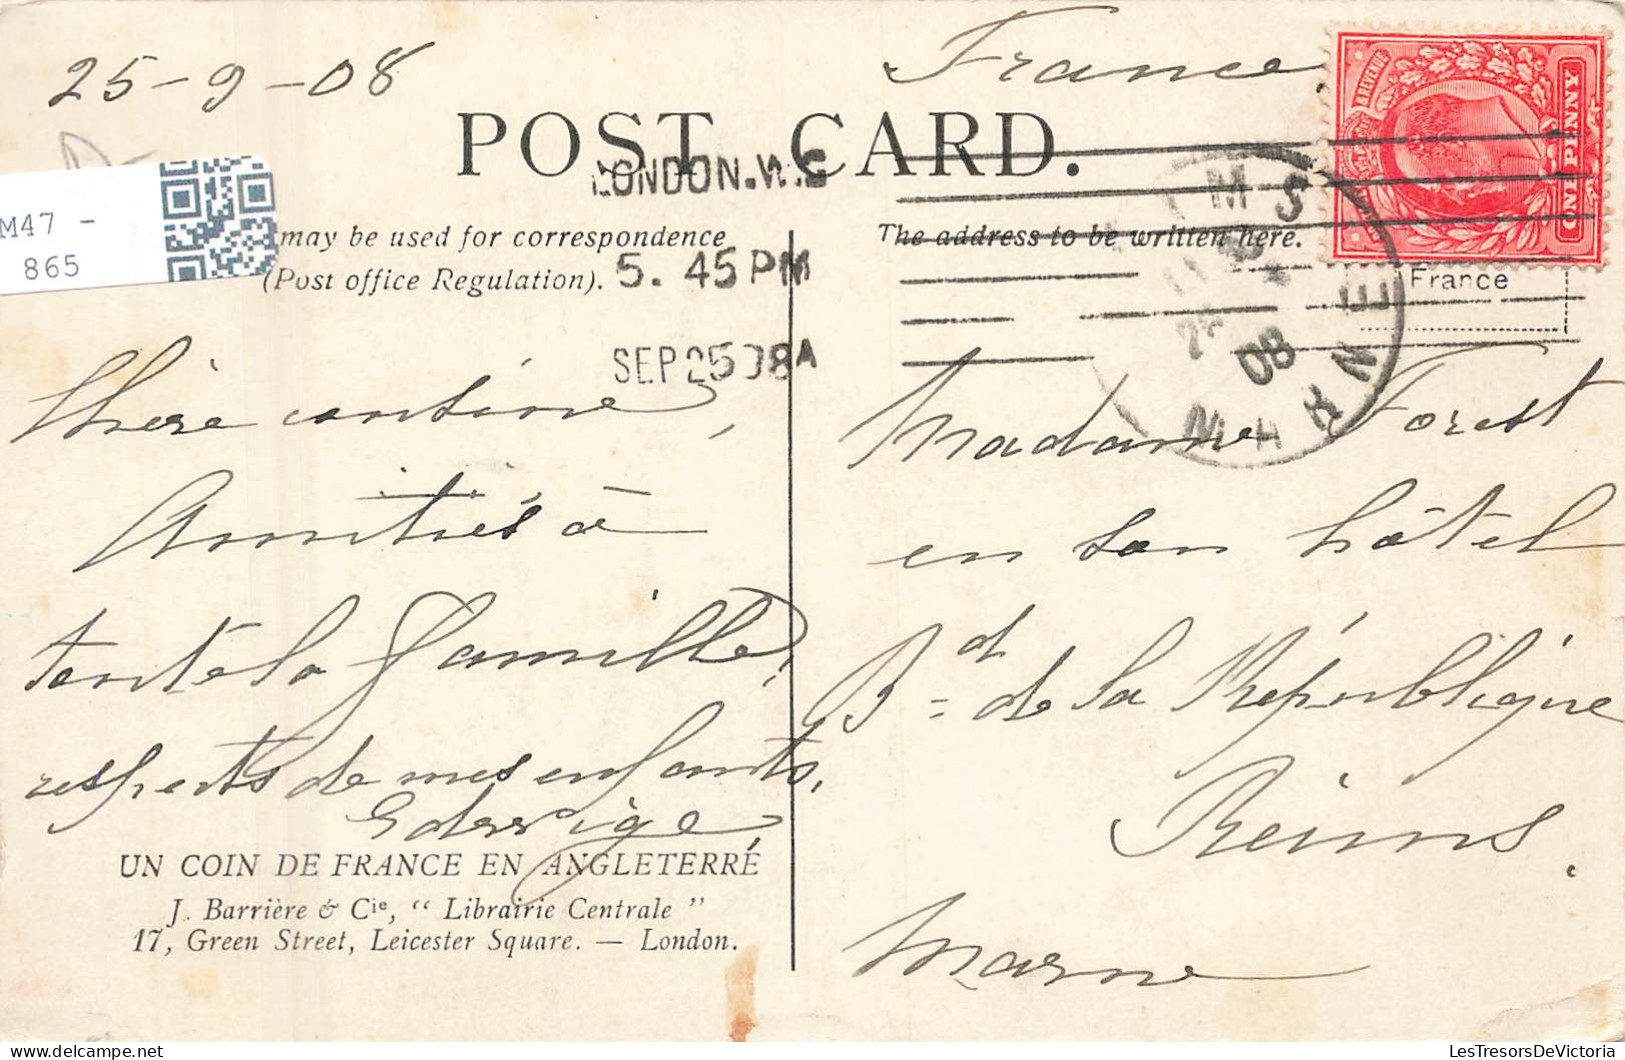 25-9-08
France
POST CARD.
LONDON.W.C
5. 45 PM
SEP 25 08 A
M47 -
865
may be used for correspondence
(Post office Regulation).
The address to be written here.
REVENUE
ONE PENNY
France
08
MARNE
Chère cousine,
Amitiés à
toute la famille,
respects de mes enfants,
UN COIN DE FRANCE EN ANGLETERRE
J. Barrière & Cie, “ Librairie Centrale ”
17, Green Street, Leicester Square. — London.
Madame Forest
en son hôtel
Bd de la République
Reims.
Marne
LesTresorsDeVictoria